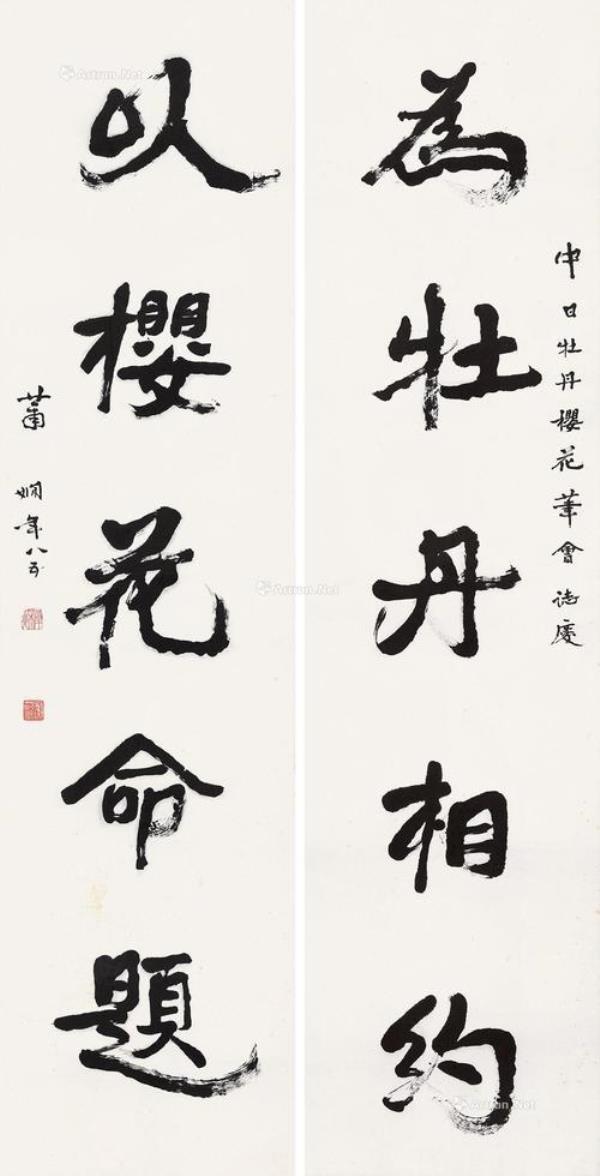 中日牡丹櫻花筆會誌慶
為牡丹相約
以櫻花命題
蕭嫻年八五
Artron.Net
Artron.Net
Artron.Net